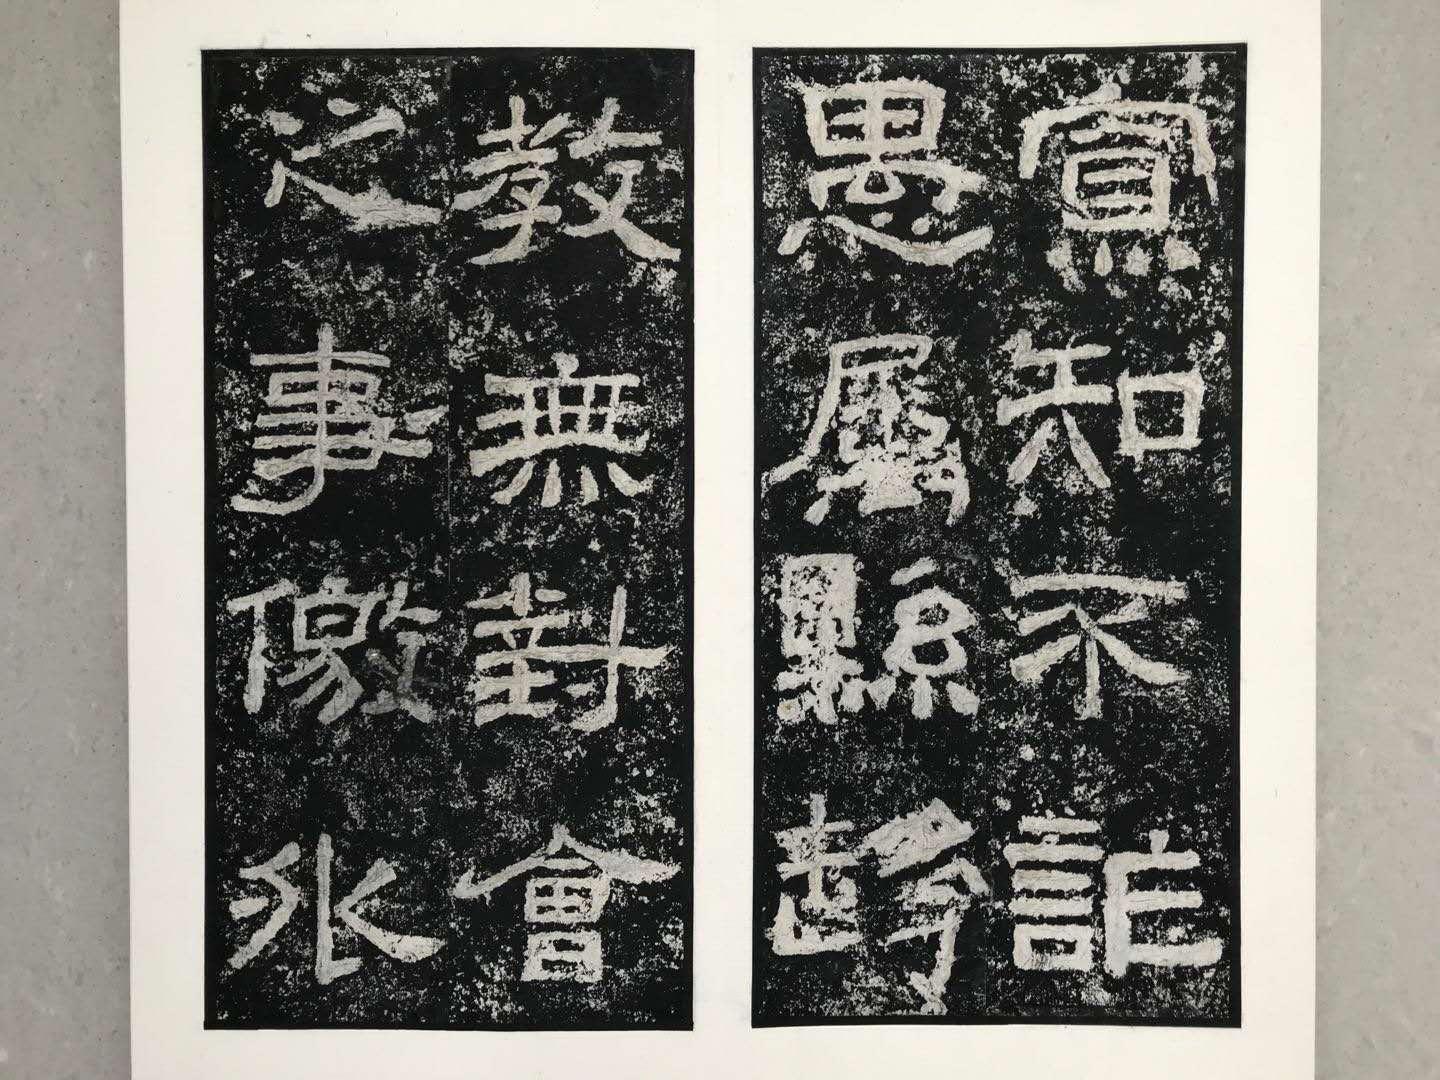 寡知不詐
愚屬縣趍
教無對會
之事儌外